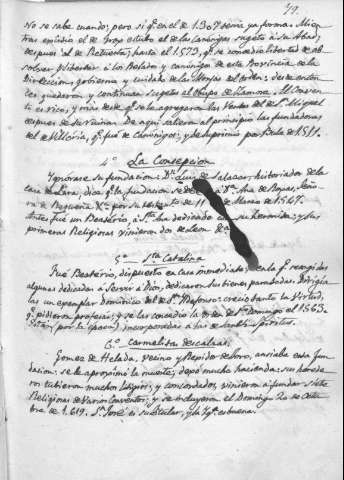 49.
No se sabe cuando; pero si qe. en el de 1307 tenia ya forma. Mien
tras existió el de Toro estubo el de las Canonigas sugeto à su Abad,
despues al de Retuerta; hasta el 1573, qe. se concedio libertad de ab
solver y libertar à los Prelados y canónigos de esta Provincia de la
Direccion, gobierno y cuidado de las Monjas del orden: desde enton
ces quedaron y continuan sugetas al Obispo de Zamora. El Conven
to es rico, y más desde qe. se le agregaron las Rentas del de Sn. Miguel
despues de su ruina. De aqui salieron al principio las fundadoras
del de Villoria, qe. fué de Canónigos; y se suprimió por Bula de 1511.
4º La Concepcion
Ignorase su fundacion: Dn. Luis de Salazar, historiador de la
casa de Lara, dice qe. la fundacion se debe à Da. Ana de Rojas, Seño
ra de Requena &a. por su testamto. de 11 de Marzo de 1547.
Antes fué un Beaterio, à Sta. Ana dedicado en su hermita: y sus
primeras Religiosas vinieron dos de Leon &a.
5º Sta. Catalina
Fué Beaterio, dispuesto en casa inmediata; en la qe. recogidas
algunas dedicadas à Servir à Dios, dedicaron sus bienes para dotarlas. Dirigia
las un exemplar dominico del de Sn. Ildefonso: crecio tanto la virtud,
qe. pidieron profesar; y se las concedio la orden de Sto. Domingo el 1563.
Están (por la épaca) incorporadas à las de Sancti Spiritus.
6º Carmelitas descalzas.
Gomez de Helada, vecino y Regidor de Toro, ansiaba esta fun
dacion: se le aproximó la muerte; dejó mucha hacienda: sus herede
ros tubieron muchos litigios; y concordados, vinieron à fundar siete
Religiosas de varios conventos; y se incluyeron el Domingo 20 de Octu
bre de 1.619. Sn. José es su titular, y la Yga. es buena.